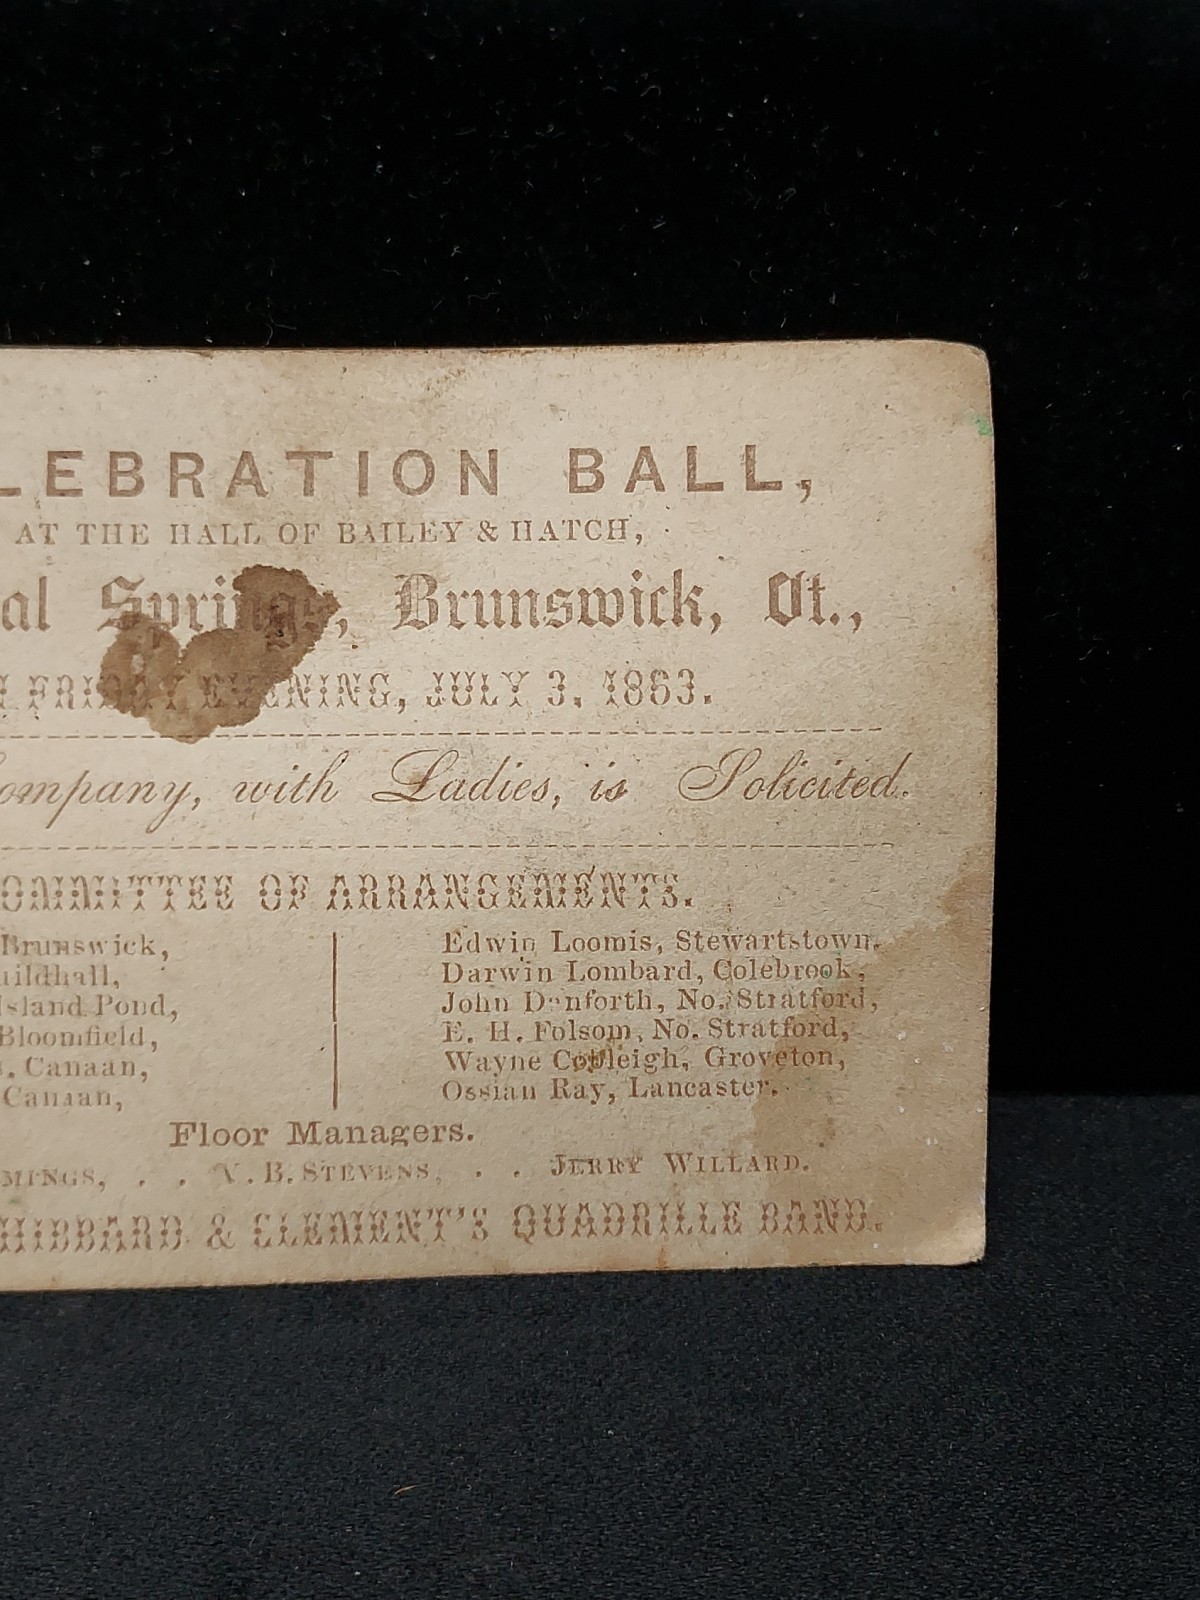 LEBRATION BALL,
AT THE HALL OF BAILEY & HATCH,
al Springs, Brunswick, Vt.,
FRIDAY EVENING, JULY 3, 1863.
ompany, with Ladies, is Solicited.
OMMITTEE OF ARRANGEMENTS.
Brunswick,
uildhall,
Island Pond,
Bloomfield,
. Canaan,
Canaan,
Edwin Loomis, Stewartstown,
Darwin Lombard, Colebrook,
John Danforth, No. Stratford,
E. H. Folsom, No. Stratford,
Wayne Cobleigh, Groveton,
Ossian Ray, Lancaster.
Floor Managers.
MINGS, . . V. B. STEVENS, . . JERRY WILLARD.
HIBBARD & CLEMENT'S QUADRILLE BAND.